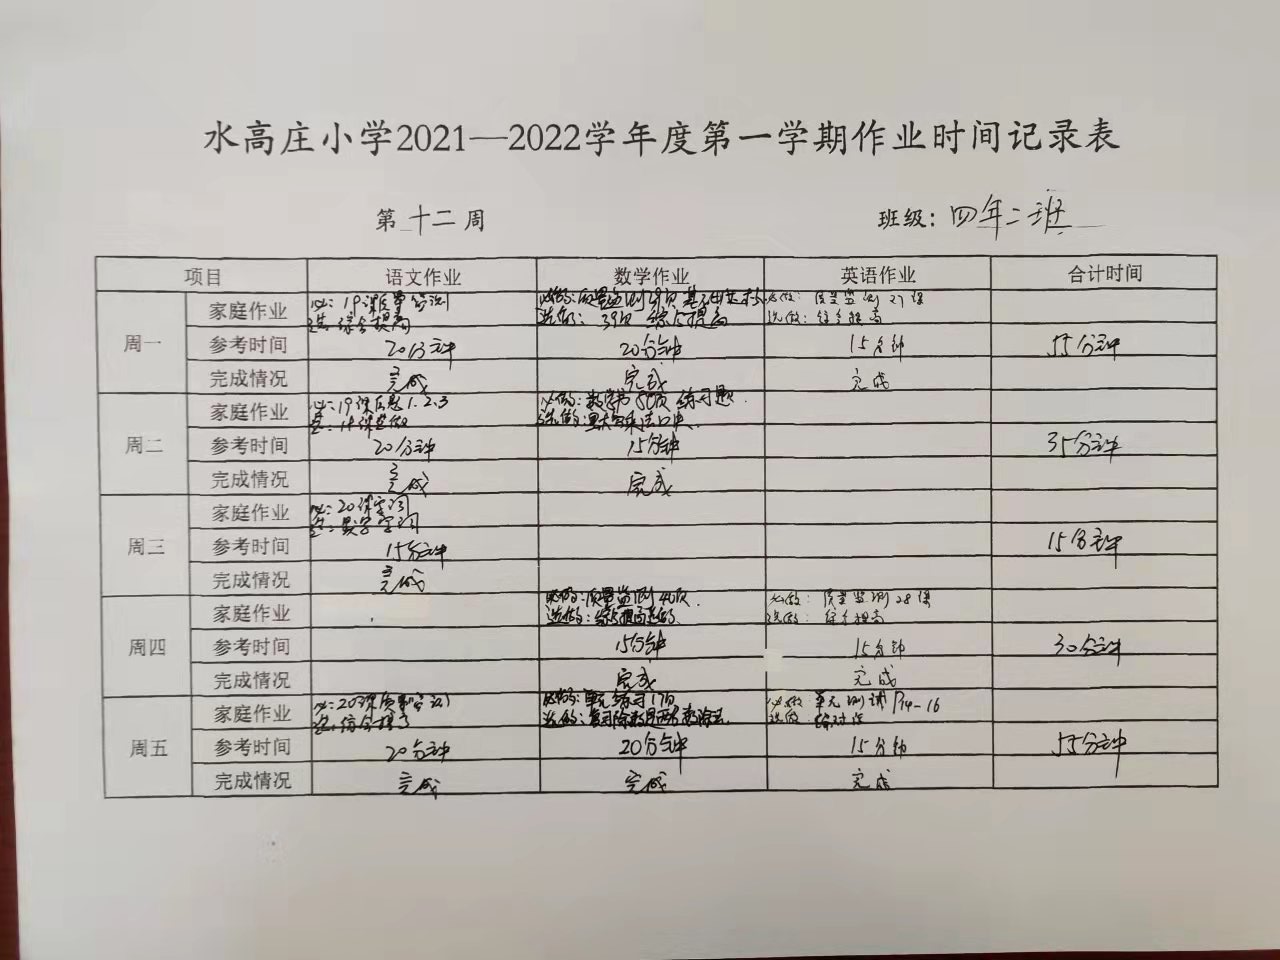 水高庄小学2021—2022学年度第一学期作业时间记录表
第 十二 周 班级：四年二班
项目 语文作业 数学作业 英语作业 合计时间
周一
家庭作业 必：19课质量 必做：质量监测39页 必做：质量监测27课
选：综合提高 选做：39页 综合提高 选做：综合提高
参考时间 20分钟 20分钟 15分钟 55分钟
完成情况 完成 完成 完成
周二
家庭作业 必：19课 1.2.3 必做：数学书 练习题.
选：19课 选做：乘法口决.
参考时间 20分钟 15分钟 35分钟
完成情况 完成 完成
周三
家庭作业 必：20课字词
字词
参考时间 15分钟 15分钟
完成情况 完成
周四
家庭作业 必做：质量监测40页. 必做：质量监测28课
选做：综合提高选做. 选做：综合提高
参考时间 15分钟 15分钟 30分钟
完成情况 完成 完成
周五
家庭作业 必：20课质量 必做：单元练习17页 必做 单元测试P14-16
选：综合提高 选做：复习除数是两位数除法. 选做
参考时间 20分钟 20分钟 15分钟 55分钟
完成情况 完成 完成 完成